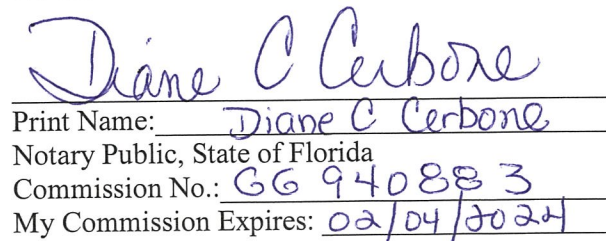 Diane C Cerbone
Print Name: Diane C Cerbone
Notary Public, State of Florida
Commission No.: GG 940883
My Commission Expires: 02/04/2024